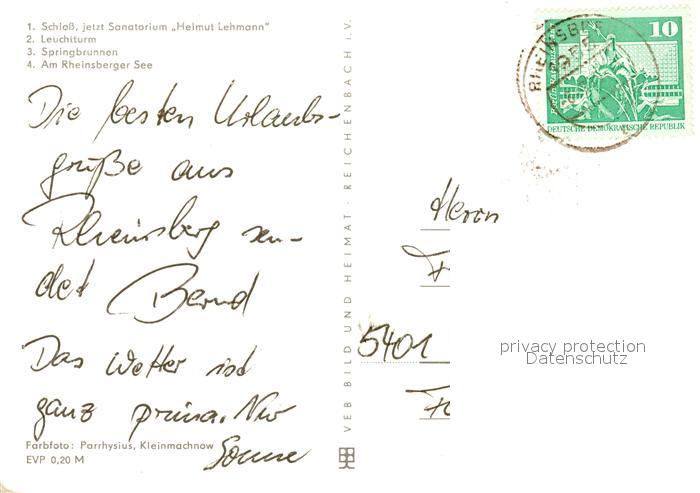 1. Schloß, jetzt Sanatorium „Helmut Lehmann"
2. Leuchtturm
3. Springbrunnen
4. Am Rheinsberger See
Die besten Urlaubs-
grüße aus
Rheinsberg sen-
det Bernd
Das Wetter ist
ganz prima. Nur
Sonne
Farbfoto: Parrhysius, Kleinmachnow
EVP 0,20 M
VEB BILD UND HEIMAT · REICHENBACH I. V.
10
DEUTSCHE DEMOKRATISCHE REPUBLIK
RHEINSBE
Herrn
5401
privacy protection
Datenschutz